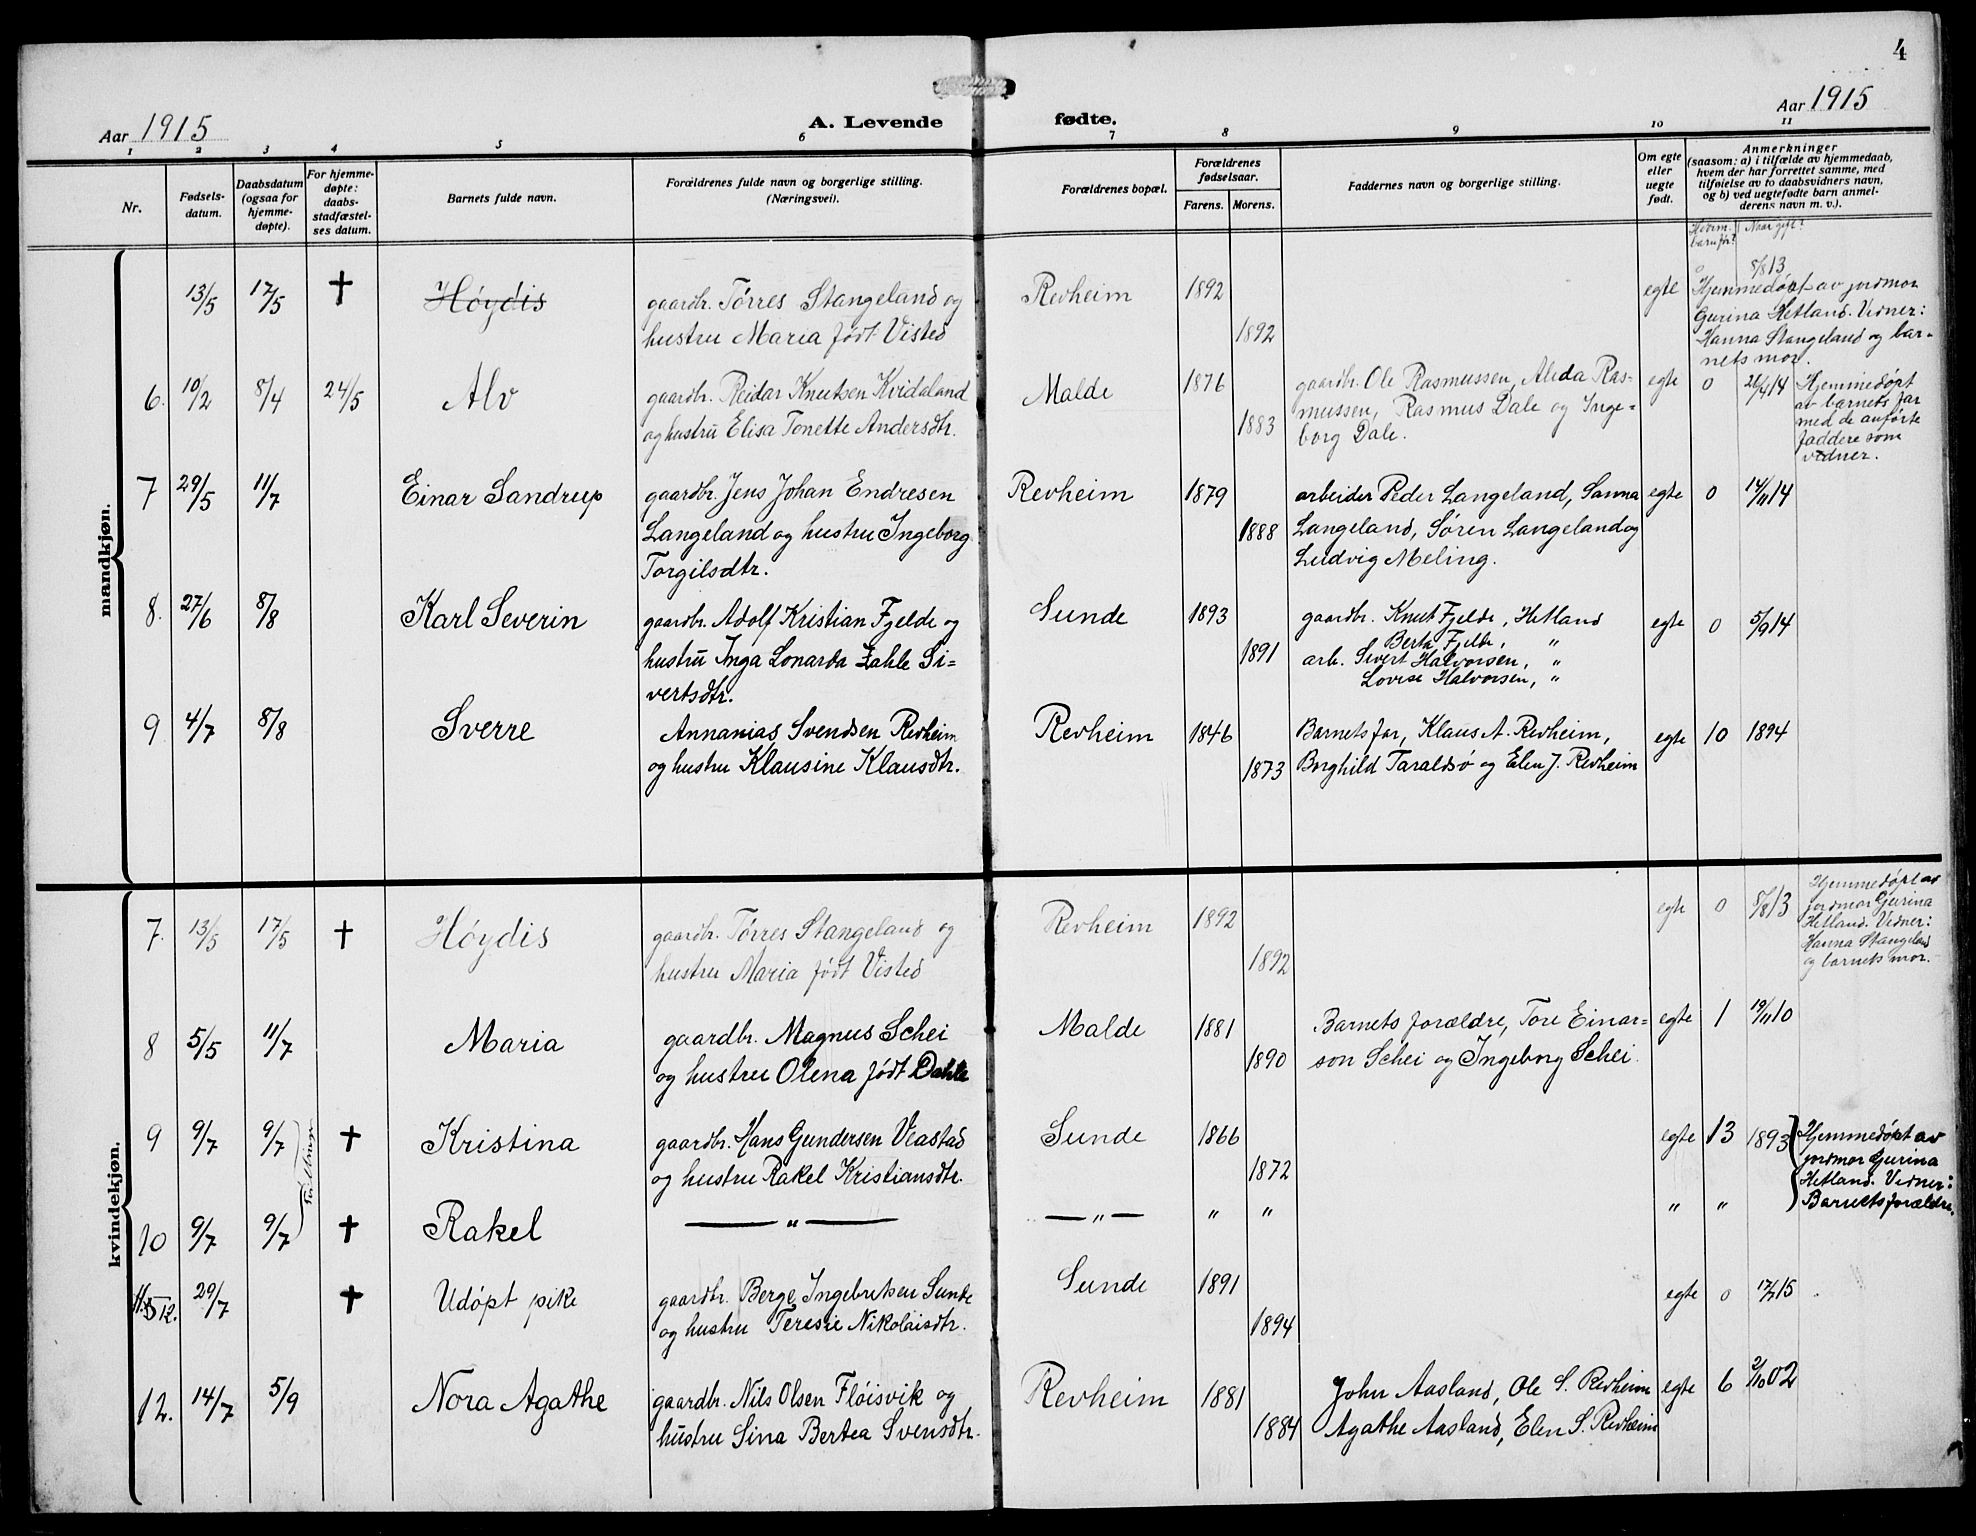 4
Aar 1915
A. Levende fødte.
Aar 1915
1 2 3 4 5 6 7 8 9 10 11
Nr.
Fødsels-
datum.
Daabsdatum
(ogsaa for
hjemme-
døpte).
For hjemme-
døpte:
daabs-
stadfæstel-
ses datum.
Barnets fulde navn.
Forældrenes fulde navn og borgerlige stilling.
(Næringsvei).
Forældrenes bopæl.
Forældrenes
fødselsaar.
Farens. Morens.
Faddernes navn og borgerlige stilling.
Om egte
eller
uegte
født.
Anmerkninger
(saasom: a) i tilfælde av hjemmedaab,
hvem der har forrettet samme, med
tilføielse av to daabsvidners navn,
og b) ved uegtefødte barn anmel-
derens navn m. v.).
barn før? Naar gift?
mandkjøn.
13/5 17/5 † Høydis
gaardbr. Tørres Stangeland og
hustru Maria født Visted
Revheim 1892
1892
egte 0 8/8 13
Hjemmedøpt av jordmor
Gurina Hetland. Vidner:
Hanna Stangeland og bar-
nets mor.
6. 10/2 8/4 24/5 Alv
gaardbr. Reidar Knutsen Kvidaland
og hustru Elisa Tonette Andersdtr.
Malde 1876
1883
gaardbr. Ole Rasmussen, Alida Ras-
mussen, Rasmus Dale og Inge-
borg Dale.
egte 0 26/4 14
Hjemmedøpt
av barnets far
med de anførte
faddere som
vidner.
7 29/5 11/7 Einar Sandrup
gaardbr. Jens Johan Endresen
Langeland og hustru Ingeborg
Torgilsdtr.
Revheim 1879
1888
arbeider Peder Langeland, Sanna
Langeland, Søren Langeland og
Ludvig Meling.
egte 0 14/11 14
8. 27/6 8/8 Karl Severin
gaardbr. Adolf Kristian Fjelde og
hustru Inga Lonarda Zahle Si-
vertsdtr.
Sunde 1893
1891
gaardbr. Knut Fjelde, Hetland
Berta Fjelde, "
arb. Sivert Halvorsen, "
Lovise Halvorsen, "
egte 0 5/9 14
9 4/7 8/8 Sverre
Annanias Svendsen Revheim
og hustru Klausine Klausdtr.
Revheim 1846
1873
Barnets far, Klaus A. Revheim,
Borghild Taraldsø og Elen J. Revheim
egte 10 1894
kvindekjøn.
7. 13/5 17/5 † Høydis
gaardbr. Tørres Stangeland og
hustru Maria født Visted
Revheim 1892
1892
egte 0 8/8 13
Hjemmedøpt av
jordmor Gurina
Hetland. Vidner:
Hanna Stangeland
og barnets mor.
8 5/5 11/7 Maria
gaardbr. Magnus Schei
og hustru Olena født Dahle
Malde 1881
1890
Barnets forældre, Tore Einar-
son Schei og Ingeborg Schei.
egte 1 19/11 10
9 9/7 9/7 † Kristina
gaardbr. Hans Gundersen Veastad
og hustru Rakel Kristiansdtr.
Sunde 1866
1872
egte 13 1893
Hjemmedøpt av
jordmor Gurina
Hetland. Vidner:
Barnets forældre.
Tvillinger
10 9/7 9/7 † Rakel
— " —
— " — " " " "
29/7 † Udøpt pike
gaardbr. Berge Ingebretsen Sunde
og hustru Teresie Nikolaisdtr.
Sunde 1891
1894
egte 0
12. 14/7 5/9 Nora Agathe
gaardbr. Nils Olsen Fløisvik og
hustru Sina Bertea Svensdtr.
Revheim 1881
1884
John Aasland, Ole S. Revheim
Agathe Aasland, Elen S. Revheim
egte 6 2/10 02